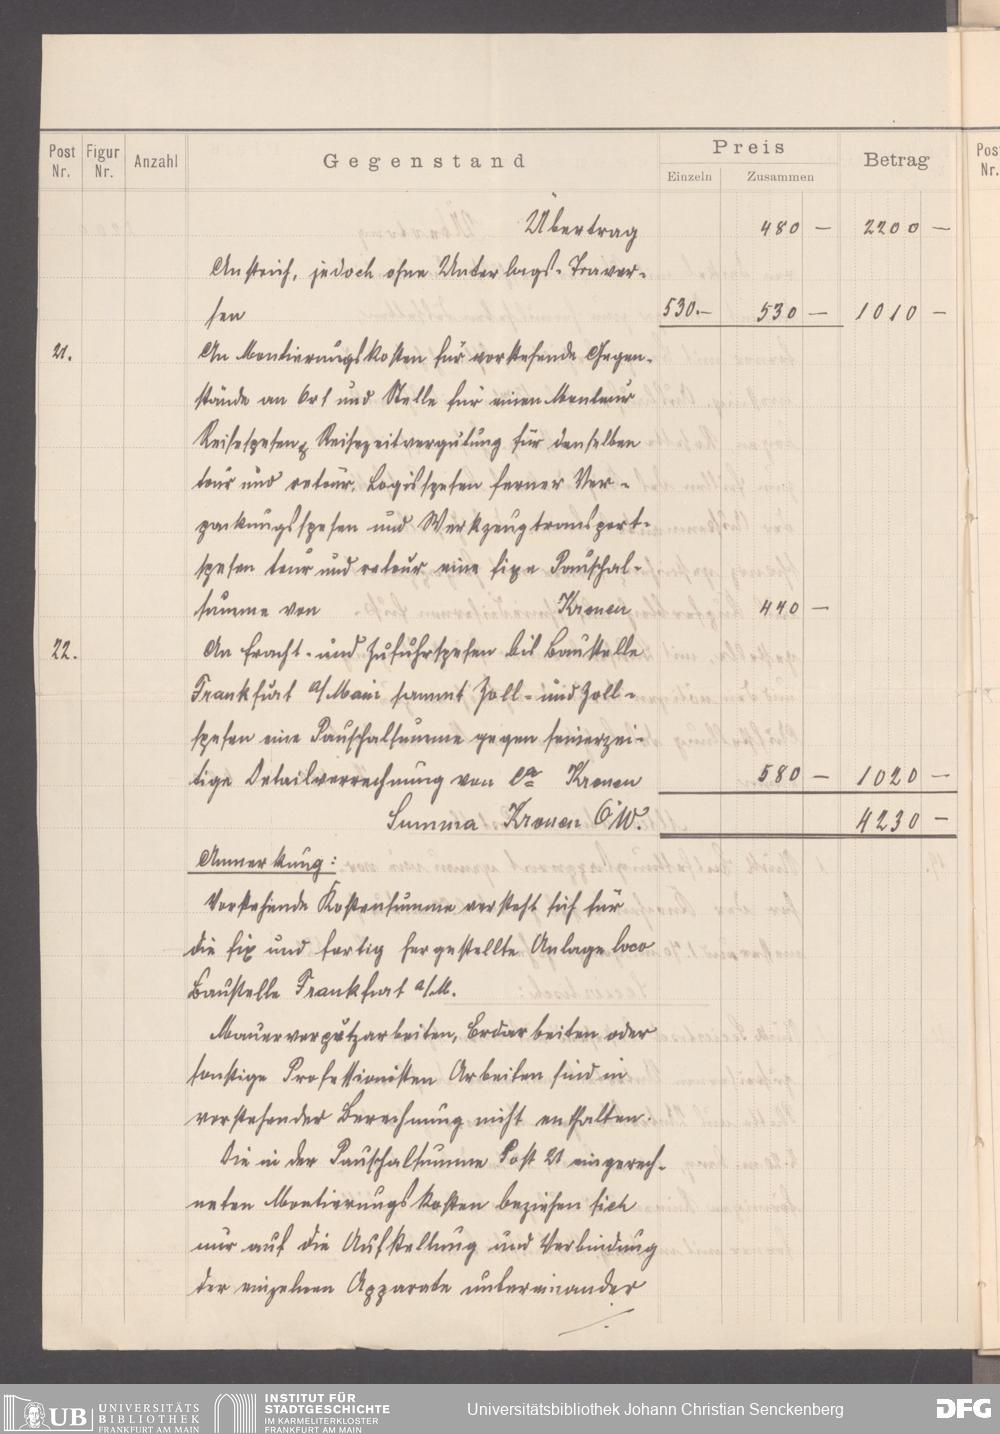 Post Nr. Figur Nr. Anzahl Gegenstand Preis Einzeln Zusammen Betrag
Post Nr.
Übertrag 480 — 2200 —
Anstrich, jedoch ohne Unterlags-Traver-
sen 530.— 530 — 1010 —
21. An Montierungskosten für vorstehende Gegen-
stände an Ort und Stelle für einen Monteur
Reisespesen & Reisezeitvergütung für denselben
tour und retour, Logisspesen ferner Ver-
packungsspesen und Werkzeugtransport-
spesen tour und retour eine fixe Pauschal-
summe von Kronen 440 —
22. An Fracht- und Zufuhrspesen bis Baustelle
Frankfurt a/Main sammt Zoll- und Zoll-
spesen eine Pauschalsumme gegen seinerzei-
tige Detailverrechnung von ca Kronen 580 — 1020 —
Summa Kronen Ö.W. 4230 —
Anmerkung:
Vorstehende Kostensumme versteht sich für
die fix und fertig hergestellte Anlage loco
Baustelle Frankfurt a/M.
Mauerverputzarbeiten, Erdarbeiten oder
sonstige Professionisten Arbeiten sind in
vorstehender Berechnung nicht enthalten.
Die in der Pauschalsumme Post 21 eingerech-
neten Montierungskosten beziehen sich
nur auf die Aufstellung und Verbindung
der einzelnen Apparate untereinander
UB UNIVERSITÄTS BIBLIOTHEK FRANKFURT AM MAIN
INSTITUT FÜR STADTGESCHICHTE IM KARMELITERKLOSTER FRANKFURT AM MAIN
Universitätsbibliothek Johann Christian Senckenberg
DFG